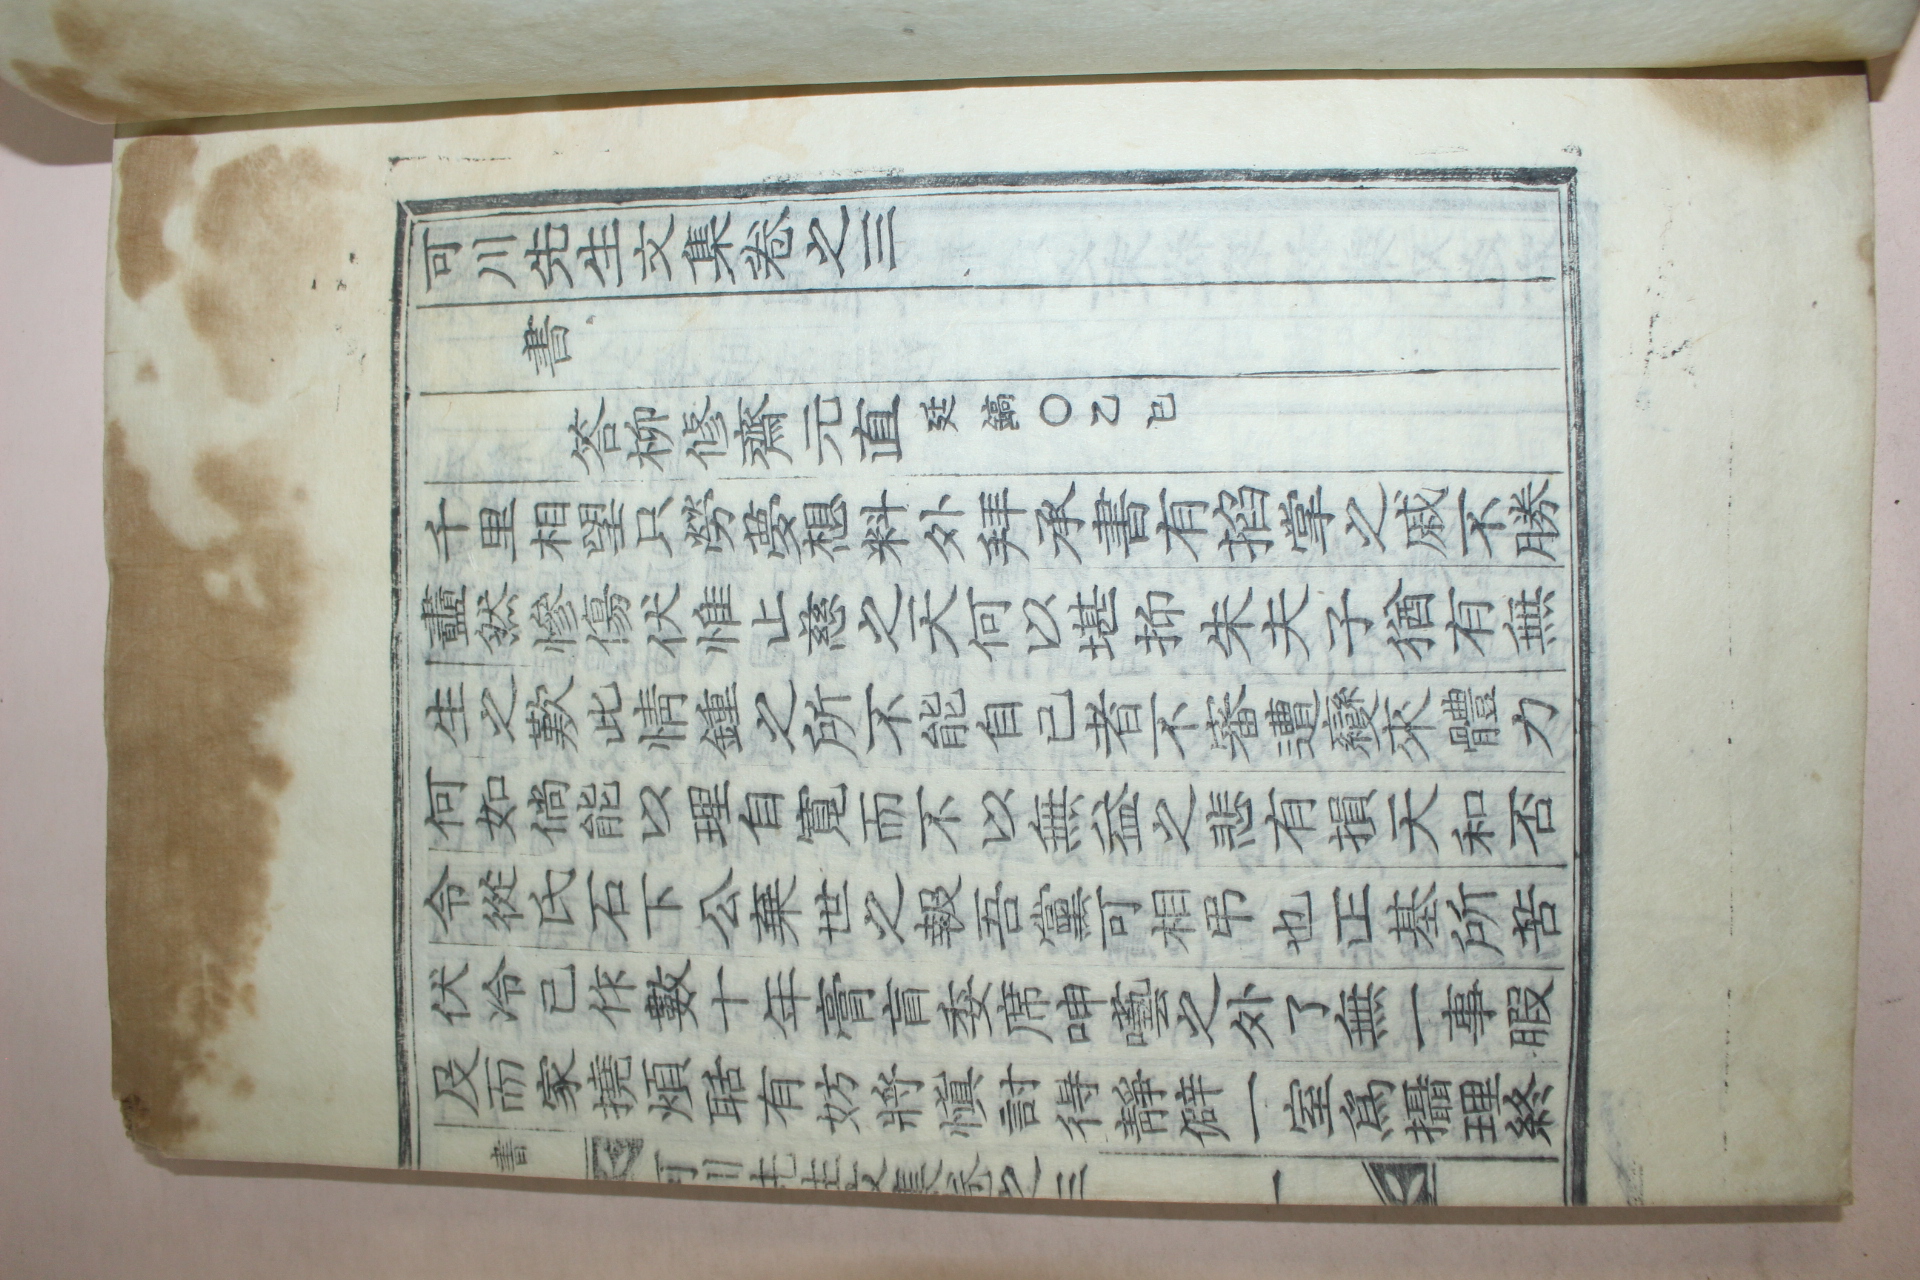 可川先生文集卷之三
書
答柳修齋元直 廷鎬〇乙巳
千里相望只勞夢想料外拜承書有掐掌之戚不勝
衋然慘傷伏惟止慈之天何以堪抑朱夫子猶有無
生之歎此情鍾之所不能自已者不審遭變來體力
何如倘能以理自寬而不以無益之悲有損天和否
令從氏石下公棄世之報吾黨可相弔也正基所苦
伏冷已作數十年膏肓委席呻囈之外了無一事暇
及而家撓煩聒有妨將愼討得靜僻一室爲攝理終
書 可川先生文集卷之三 一